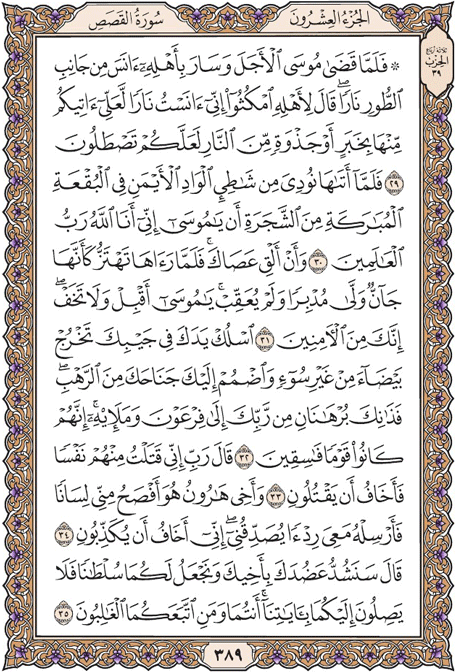 الجزء العشرون
سورة القصص
ثلاثة أرباع
الحزب
٣٩
۞ فَلَمَّا قَضَىٰ مُوسَى ٱلْأَجَلَ وَسَارَ بِأَهْلِهِۦٓ ءَانَسَ مِن جَانِبِ
ٱلطُّورِ نَارًاۖ قَالَ لِأَهْلِهِ ٱمْكُثُوٓا۟ إِنِّىٓ ءَانَسْتُ نَارًا لَّعَلِّىٓ ءَاتِيكُم
مِّنْهَا بِخَبَرٍ أَوْ جَذْوَةٍ مِّنَ ٱلنَّارِ لَعَلَّكُمْ تَصْطَلُونَ
٢٩ فَلَمَّآ أَتَىٰهَا نُودِىَ مِن شَـٰطِئِ ٱلْوَادِ ٱلْأَيْمَنِ فِى ٱلْبُقْعَةِ
ٱلْمُبَـٰرَكَةِ مِنَ ٱلشَّجَرَةِ أَن يَـٰمُوسَىٰٓ إِنِّىٓ أَنَا ٱللَّهُ رَبُّ
ٱلْعَـٰلَمِينَ ٣٠ وَأَنْ أَلْقِ عَصَاكَۖ فَلَمَّا رَءَاهَا تَهْتَزُّ كَأَنَّهَا
جَآنٌّ وَلَّىٰ مُدْبِرًا وَلَمْ يُعَقِّبْۚ يَـٰمُوسَىٰٓ أَقْبِلْ وَلَا تَخَفْۖ
إِنَّكَ مِنَ ٱلْـَٔامِنِينَ ٣١ ٱسْلُكْ يَدَكَ فِى جَيْبِكَ تَخْرُجْ
بَيْضَآءَ مِنْ غَيْرِ سُوٓءٍ وَٱضْمُمْ إِلَيْكَ جَنَاحَكَ مِنَ ٱلرَّهْبِۖ
فَذَٰنِكَ بُرْهَـٰنَانِ مِن رَّبِّكَ إِلَىٰ فِرْعَوْنَ وَمَلَإِي۟هِۦٓۚ إِنَّهُمْ
كَانُوا۟ قَوْمًا فَـٰسِقِينَ ٣٢ قَالَ رَبِّ إِنِّى قَتَلْتُ مِنْهُمْ نَفْسًا
فَأَخَافُ أَن يَقْتُلُونِ ٣٣ وَأَخِى هَـٰرُونُ هُوَ أَفْصَحُ مِنِّى لِسَانًا
فَأَرْسِلْهُ مَعِىَ رِدْءًا يُصَدِّقُنِىٓۖ إِنِّىٓ أَخَافُ أَن يُكَذِّبُونِ ٣٤
قَالَ سَنَشُدُّ عَضُدَكَ بِأَخِيكَ وَنَجْعَلُ لَكُمَا سُلْطَـٰنًا فَلَا
يَصِلُونَ إِلَيْكُمَا بِـَٔايَـٰتِنَآۚ أَنتُمَا وَمَنِ ٱتَّبَعَكُمَا ٱلْغَـٰلِبُونَ ٣٥
٣٨٩